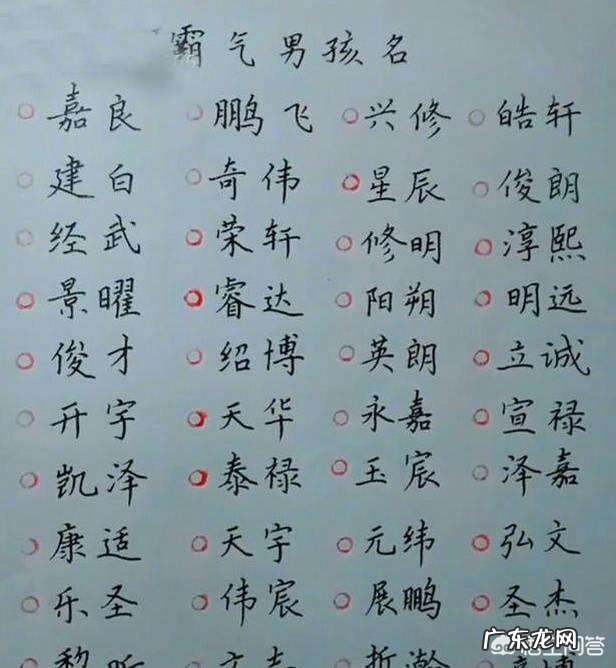 霸气男孩名
嘉良 鹏飞 兴修 皓轩
建白 奇伟 星辰 俊朗
经武 荣轩 修明 淳熙
景曜 睿达 阳朔 明远
俊才 绍博 英朗 立诚
开宇 天华 永嘉 宣禄
凯泽 泰禄 玉宸 泽嘉
康适 天宇 元纬 弘文
乐圣 伟宸 展鹏 圣杰
悟空问答
广东龙网